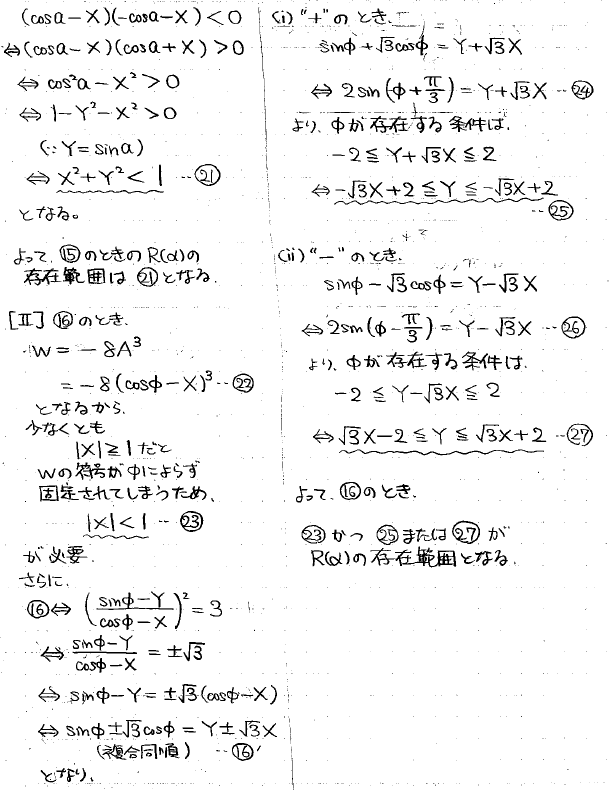 (cosa－X)(-cosa－X)<0
⇔(cosa－X)(cosa+X)>0
⇔ cos²a－X²>0
⇔ 1－Y²－X²>0
(∵Y=sina)
⇔ X²+Y²<1 …㉑
となる。
よって、⑮のときのR(α)の
存在範囲は㉑となる.
[Ⅱ] ⑯のとき.
W = －8A³
= －8(cosφ－X)³…㉒
となるから.
少なくとも
|X|≧1だと
Wの符号がφによらず
固定されてしまうため、
|X|<1 …㉓
が必要.
さらに.
⑯⇔ ((sinφ－Y)/(cosφ－X))²=3
⇔ (sinφ－Y)/(cosφ－X) = ±√3
⇔ sinφ－Y=±√3(cosφ－X)
⇔ sinφ±√3cosφ = Y±√3X
(複合同順) …⑯'
となり、
(i) "+"のとき.
sinφ+√3cosφ = Y+√3X
⇔ 2sin(φ+π/3)=Y+√3X …㉔
より、φが存在する条件は.
－2≦Y+√3X≦2
⇔ -√3X+2≦Y≦-√3X+2
…㉕
(ii) "－"のとき.
sinφ－√3cosφ=Y－√3X
⇔ 2sin(φ－π/3)=Y－√3X …㉖
より、φが存在する条件は.
－2≦Y－√3X≦2
⇔ √3X－2≦Y≦√3X+2 …㉗
よって、⑯のとき.
㉓かつ ㉕または㉗が
R(α)の存在範囲となる.